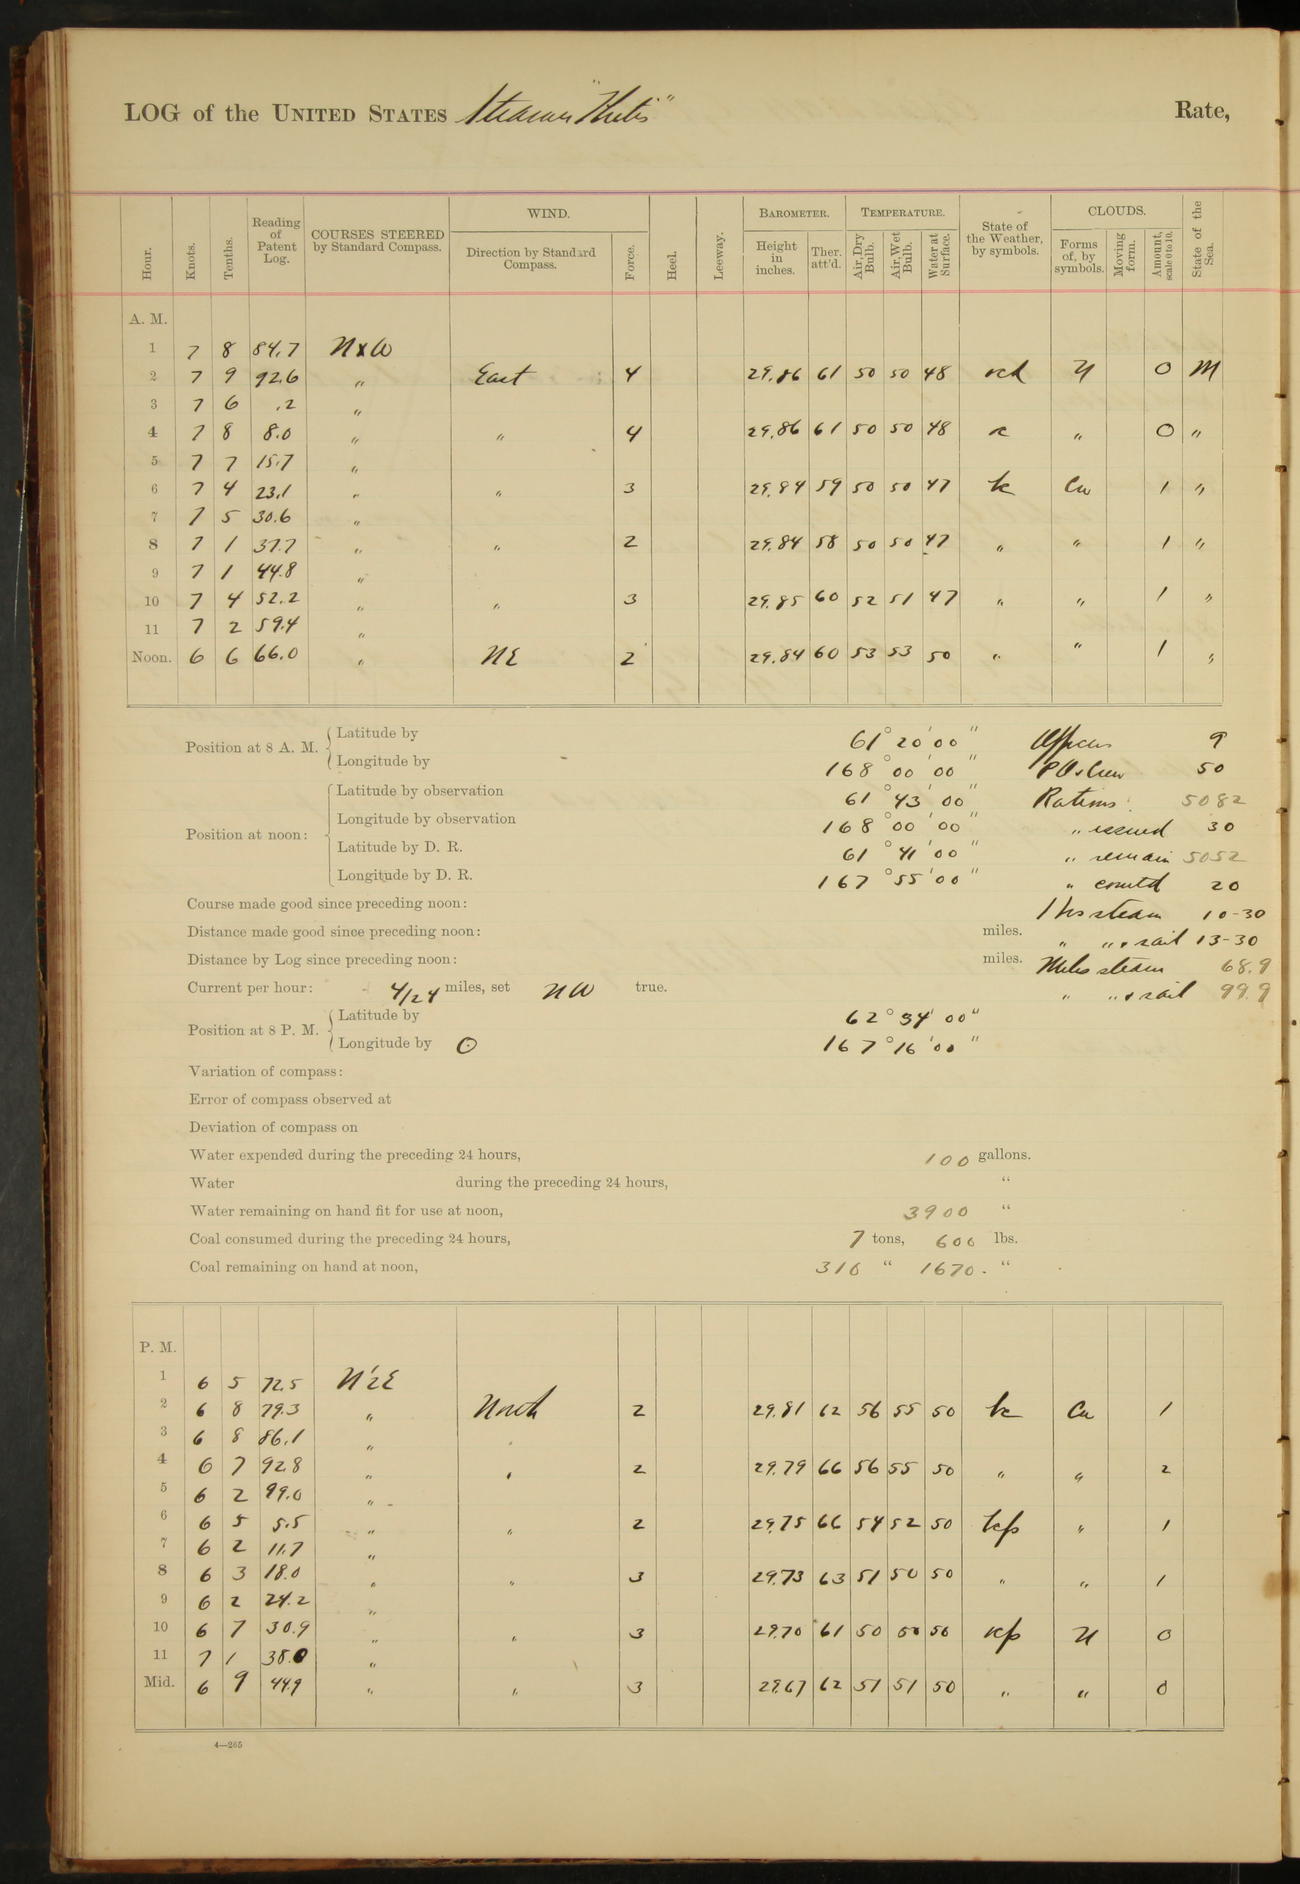 LOG of the UNITED STATES Steamer "Thetis" Rate,
Hour. Knots. Tenths. Reading of Patent Log. COURSES STEERED by Standard Compass. WIND. Direction by Standard Compass. Force. Heel. Leeway. BAROMETER. Height in inches. Ther. att'd. TEMPERATURE. Air, Dry Bulb. Air, Wet Bulb. Water at Surface. State of the Weather, by symbols. CLOUDS. Forms of, by symbols. Moving form. Amount, scale 0 to 10. State of the Sea.
A. M.
1 7 8 84.7 NxW
2 7 9 92.6 " East 4 29.86 61 50 50 48 N 0 M
3 7 6 .2 "
4 7 8 8.0 " " 4 29.86 61 50 50 48 " 0 "
5 7 7 15.7 "
6 7 4 23.1 " " 3 29.84 59 50 50 47 bc Cu 1 "
7 7 5 30.6 "
8 7 1 37.7 " " 2 29.84 58 50 50 47 " " 1 "
9 7 1 44.8 "
10 7 4 52.2 " " 3 29.85 60 52 51 47 " " 1 "
11 7 2 59.4 "
Noon. 6 6 66.0 " NE 2 29.84 60 53 53 50 " " 1 "
Position at 8 A. M. Latitude by 61° 20' 00" Officers 9
Longitude by 168° 00' 00" P Os & Crew 50
Position at noon: Latitude by observation 61° 43' 00" Rations 5082
Longitude by observation 168° 00' 00" " issued 30
Latitude by D. R. 61° 41' 00" " remain 5052
Longitude by D. R. 167° 55' 00" " comtd 20
Course made good since preceding noon: Hrs steam 10-30
Distance made good since preceding noon: miles. " " & sail 13-30
Distance by Log since preceding noon: miles. Miles steam 68.9
Current per hour: 4/24 miles, set NW true. " " & sail 99.9
Position at 8 P. M. Latitude by 62° 34' 00"
Longitude by ⊙ 167° 16' 00"
Variation of compass:
Error of compass observed at
Deviation of compass on
Water expended during the preceding 24 hours, 100 gallons.
Water during the preceding 24 hours, "
Water remaining on hand fit for use at noon, 3900 "
Coal consumed during the preceding 24 hours, 7 tons, 600 lbs.
Coal remaining on hand at noon, 316 " 1670. "
P. M.
1 6 5 72.5 N½E
2 6 8 79.3 " North 2 29.81 62 56 55 50 bc Cu 1
3 6 8 86.1 "
4 6 7 92.8 " " 2 29.79 66 56 55 50 " " 2
5 6 2 99.0 "
6 6 5 5.5 " " 2 29.75 66 54 52 50 bcp " 1
7 6 2 11.7 "
8 6 3 18.0 " " 3 29.73 63 51 50 50 " " 1
9 6 2 24.2 "
10 6 7 30.9 " " 3 29.70 61 50 50 50 N 0
11 7 1 38.0 "
Mid. 6 9 44.9 " " 3 29.67 62 51 51 50 " " 0
4—265